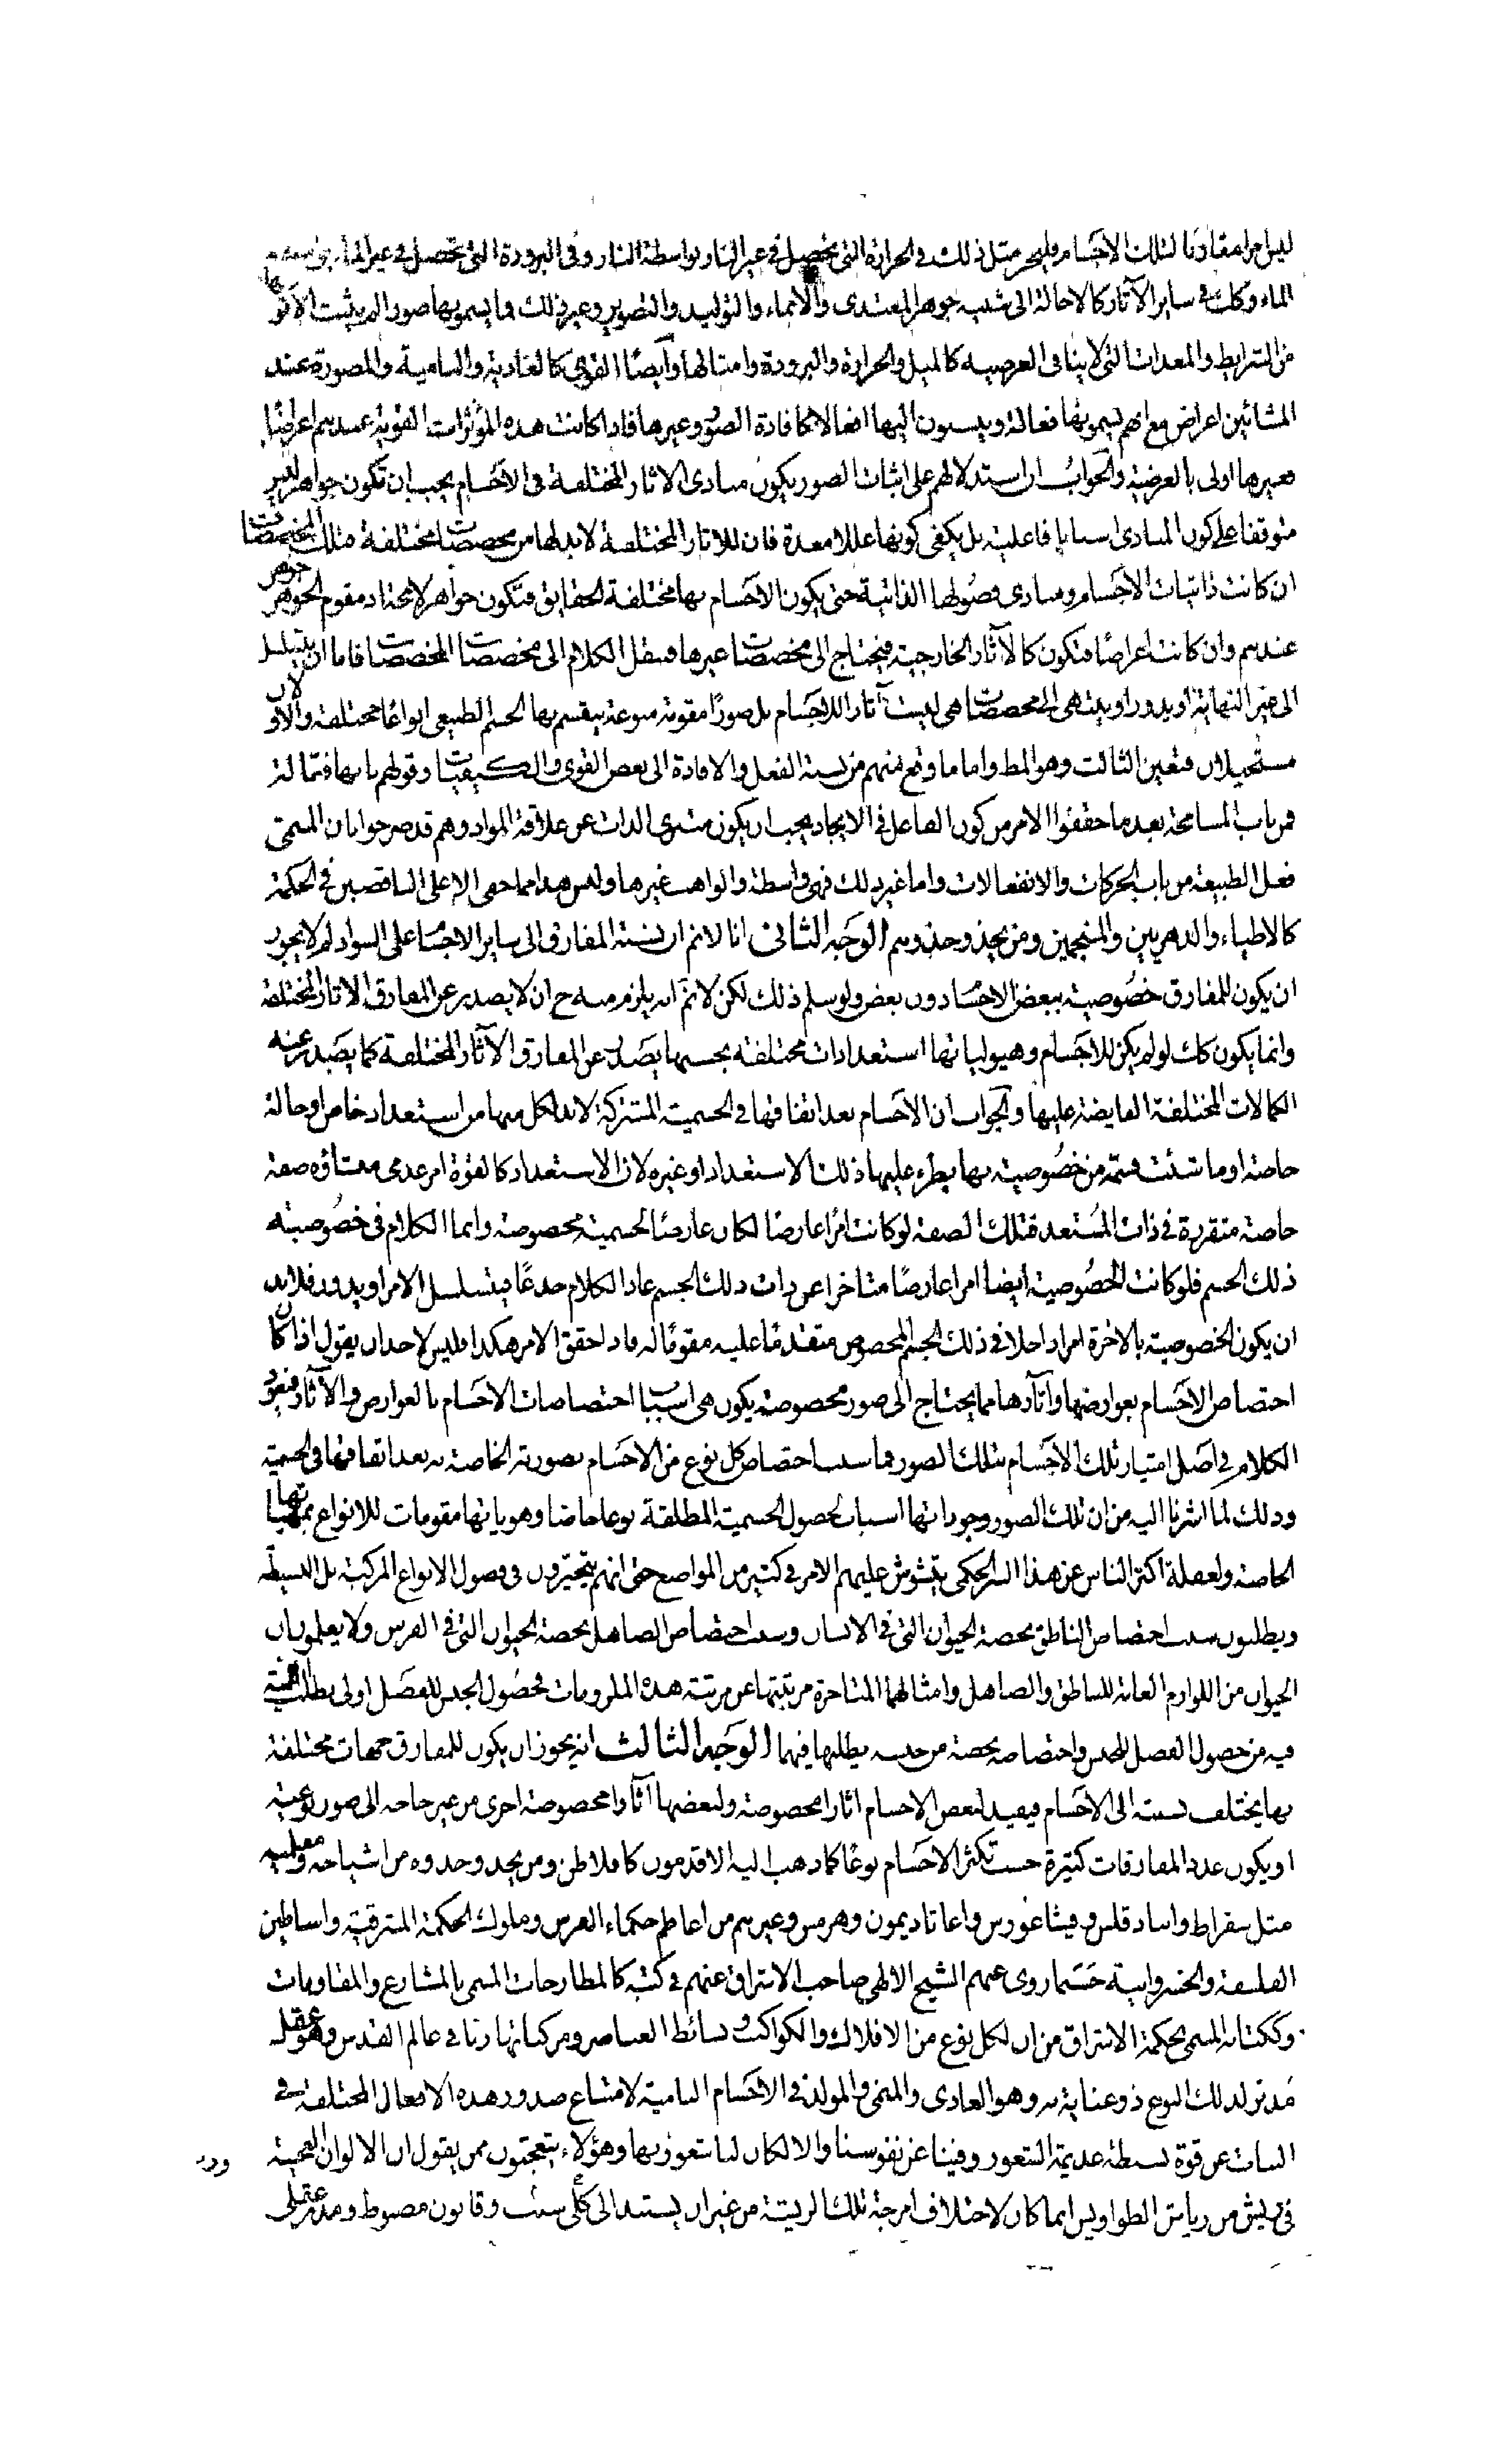 ليس امرا مقارنا لتلك الاجسام وليجر مثل ذلك في الحرارة التي تحصل في غير النار بواسطة النار وفي البرودة التي تحصل في غير الماء
الماء وكك في ساير الآثار كالاحالة الى شبيه جوهر المغتدى والانماء والتوليد والتصوير وغير ذلك فما يسمونها صورا لم يثبت الا كونها
من الشرايط والمعدات التي لا ينافى العرضيه كالميل والحرارة والبرودة وامثالها وايضًا القوى كالغاذية والنامية والمصورة عند
المشائين اعراض مع انهم يسمونها فعالة وينسبون اليها افعالا كافادة الصور وغيرها فاذا كانت هذه المؤثرات القوية عندهم اعراضًا
فغيرها اولى بالعرضية والجواب ان استدلالهم على اثبات الصور بكون مبادى الاثار المختلفة في الاجسام يجب ان تكون جواهر ليس
متوقفا على كون المبادى اسبابا فاعلية بل يكفى كونها عللا معدة فان للاثار المختلفة لابد لها من مخصصات مختلفة فتلك المخصصات
ان كانت ذاتيات الاجسام ومبادى فصولها الذاتية حتى يكون الاجسام بها مختلفة الحقايق فتكون جواهر لا محالة اذ مقوم الجوهر جوهر
عندهم وان كانت اعراضًا فتكون كالآثار الخارجية فيحتاج الى مخصصات غيرها فننقل الكلام الى مخصصات المخصصات فاما ان يتسلسل
الى غير النهاية او يدور او ينتهى الى مخصصات هى ليست آثارا للاجسام بل صورًا مقومة منوعة ينقسم بها الجسم الطبيعى انواعًا مختلفة والاولان
مستحيلان فتعين الثالث وهو المط واما ما وقع منهم من نسبة الفعل والافادة الى بعض القوى والكيفيات وقولهم بانها فعّالة
فمن باب المسامحة بعد ما حققوا الامر من كون الفاعل في الايجاد يجب ان يكون متبرى الذات عن علاقة المواد وهم قد صرحوا بان المسمى
فعل الطبيعة من باب الحركات والانفعالات واما غير ذلك فهى واسطة والواهب غيرها وليس هذا مما خفى الا على الناقصين في الحكمة
كالاطباء والدهريين والمنجمين ومن يحذو حذوهم الوجه الثانى انا لا نم ان نسبة المفارق الى ساير الاجسام على السواء لم لا يجوز
ان يكون للمفارق خصوصية ببعض الاجسام دون بعض ولو سلم ذلك لكن لا نم انه يلزم منه ح ان لا يصدر عن المفارق الاثار المختلفة
وانما يكون كك لو لم يكن للاجسام وهيولياتها استعدادات مختلفة بحسبها يصدر عن المفارق الآثار المختلفة كما يصدر عنه
الكمالات المختلفة الفايضة عليها والجواب ان الاجسام بعد اتفاقها في الجسمية المشتركة لابد لكل منها من استعداد خاص او حالة
خاصة او ما شئت فسمّه من خصوصية بها يطرء عليها ذلك الاستعداد او غيره لان الاستعداد كالقوة امر عدمى منشاؤه صفة
خاصة متقررة في ذات المستعد فتلك الصفة لو كانت امرًا عارضا لكان عارضًا لجسمية مخصوصة وانما الكلام في خصوصيته
ذلك الجسم فلو كانت الخصوصية ايضا امرا عارضًا متاخرا عن ذات ذلك الجسم عاد الكلام جدعًا فيتسلسل الامر او يدور فلابد
ان يكون الخصوصية بالاخرة امرا داخلا في ذلك الجسم المخصوص متقدمًا عليه مقومًا له فاذا حقق الامر هكذا فليس لاحد ان يقول اذا كان
اختصاص الاجسام بعوارضها وآثارها مما يحتاج الى صور مخصوصة يكون هى اسباب اختصاصات الاجسام بالعوارض والآثار فنعود
الكلام في اصل امتياز تلك الاجسام بتلك الصور فما سبب اختصاص كل نوع من الاجسام بصورته الخاصة به بعد اتفاقها في الجسمية
وذلك لما اشرنا اليه من ان تلك الصور وجوداتها اسباب لحصول الجسمية المطلقة نوعا خاصا وهوياتها مقومات للانواع بمهياتها
الخاصة ولغفلة اكثر الناس عن هذا السر الحكمى يتشوش عليهم الامر في كثير من المواضع حتى انهم يتحيّرون في فصول الانواع المركبة بل البسيطة
ويطلبون سبب اختصاص الناطق بحصة الحيوان التي في الانسان وسبب اختصاص الصاهل بحصة الحيوان التي في الفرس ولا يعلمون ان
الحيوان من اللوازم العامة للناطق والصاهل وامثالهما المتاخرة مرتبتها عن مرتبة هذه الملزومات فحصول الجنس للفصل اولى بطلب
فيه من حصول الفصل للجنس واختصاصه بحصة من جنسه يطلبها فيهما الوجه الثالث انه يجوز ان يكون للمفارق جهات مختلفة
بها يختلف نسبته الى الاجسام فيفيد لبعض الاجسام اثارا مخصوصة ولبعضها آثارا مخصوصة اخرى من غير حاجه الى صور نوعية
او يكون عدد المفارقات كثيرة حسب تكثر الاجسام نوعًا كما ذهب اليه الاقدمون كافلاطن ومن يحذو حذوه من اشياخه ومعلميه
مثل سقراط وانباذقلس وفيثاغورس واغاثاديمون وهرمس وغيرهم من اعاظم حكماء الفرس وملوك الحكمة المشرقية واساطين
الفلسفة والخسروانية حسبما روى عنهم الشيخ الالهى صاحب الاشراق عنهم في كتبه كالمطارحات المسمى بالمشارع والمقاومات
وككتابه المسمى بحكمة الاشراق من ان لكل نوع من الافلاك والكواكب وبسائط العناصر ومركباتها ربا في عالم القدس وهو عقل
مدبر لذلك النوع ذو عناية به وهو الغاذى والمنمى والمولد في الاجسام النامية لامتناع صدور هذه الافعال المختلفة في
النبات عن قوة بسيطة عديمة الشعور وفينا عن نفوسنا والا لكان لنا شعور بها وهؤلاء يتعجبون ممن يقول ان الالوان العجيبة
في ريش من رياش الطواويس انما كان لاختلاف امزجة تلك الريشة من غير ان يستند الى كلّى سبب وقانون مضبوط ومدبر عقلى